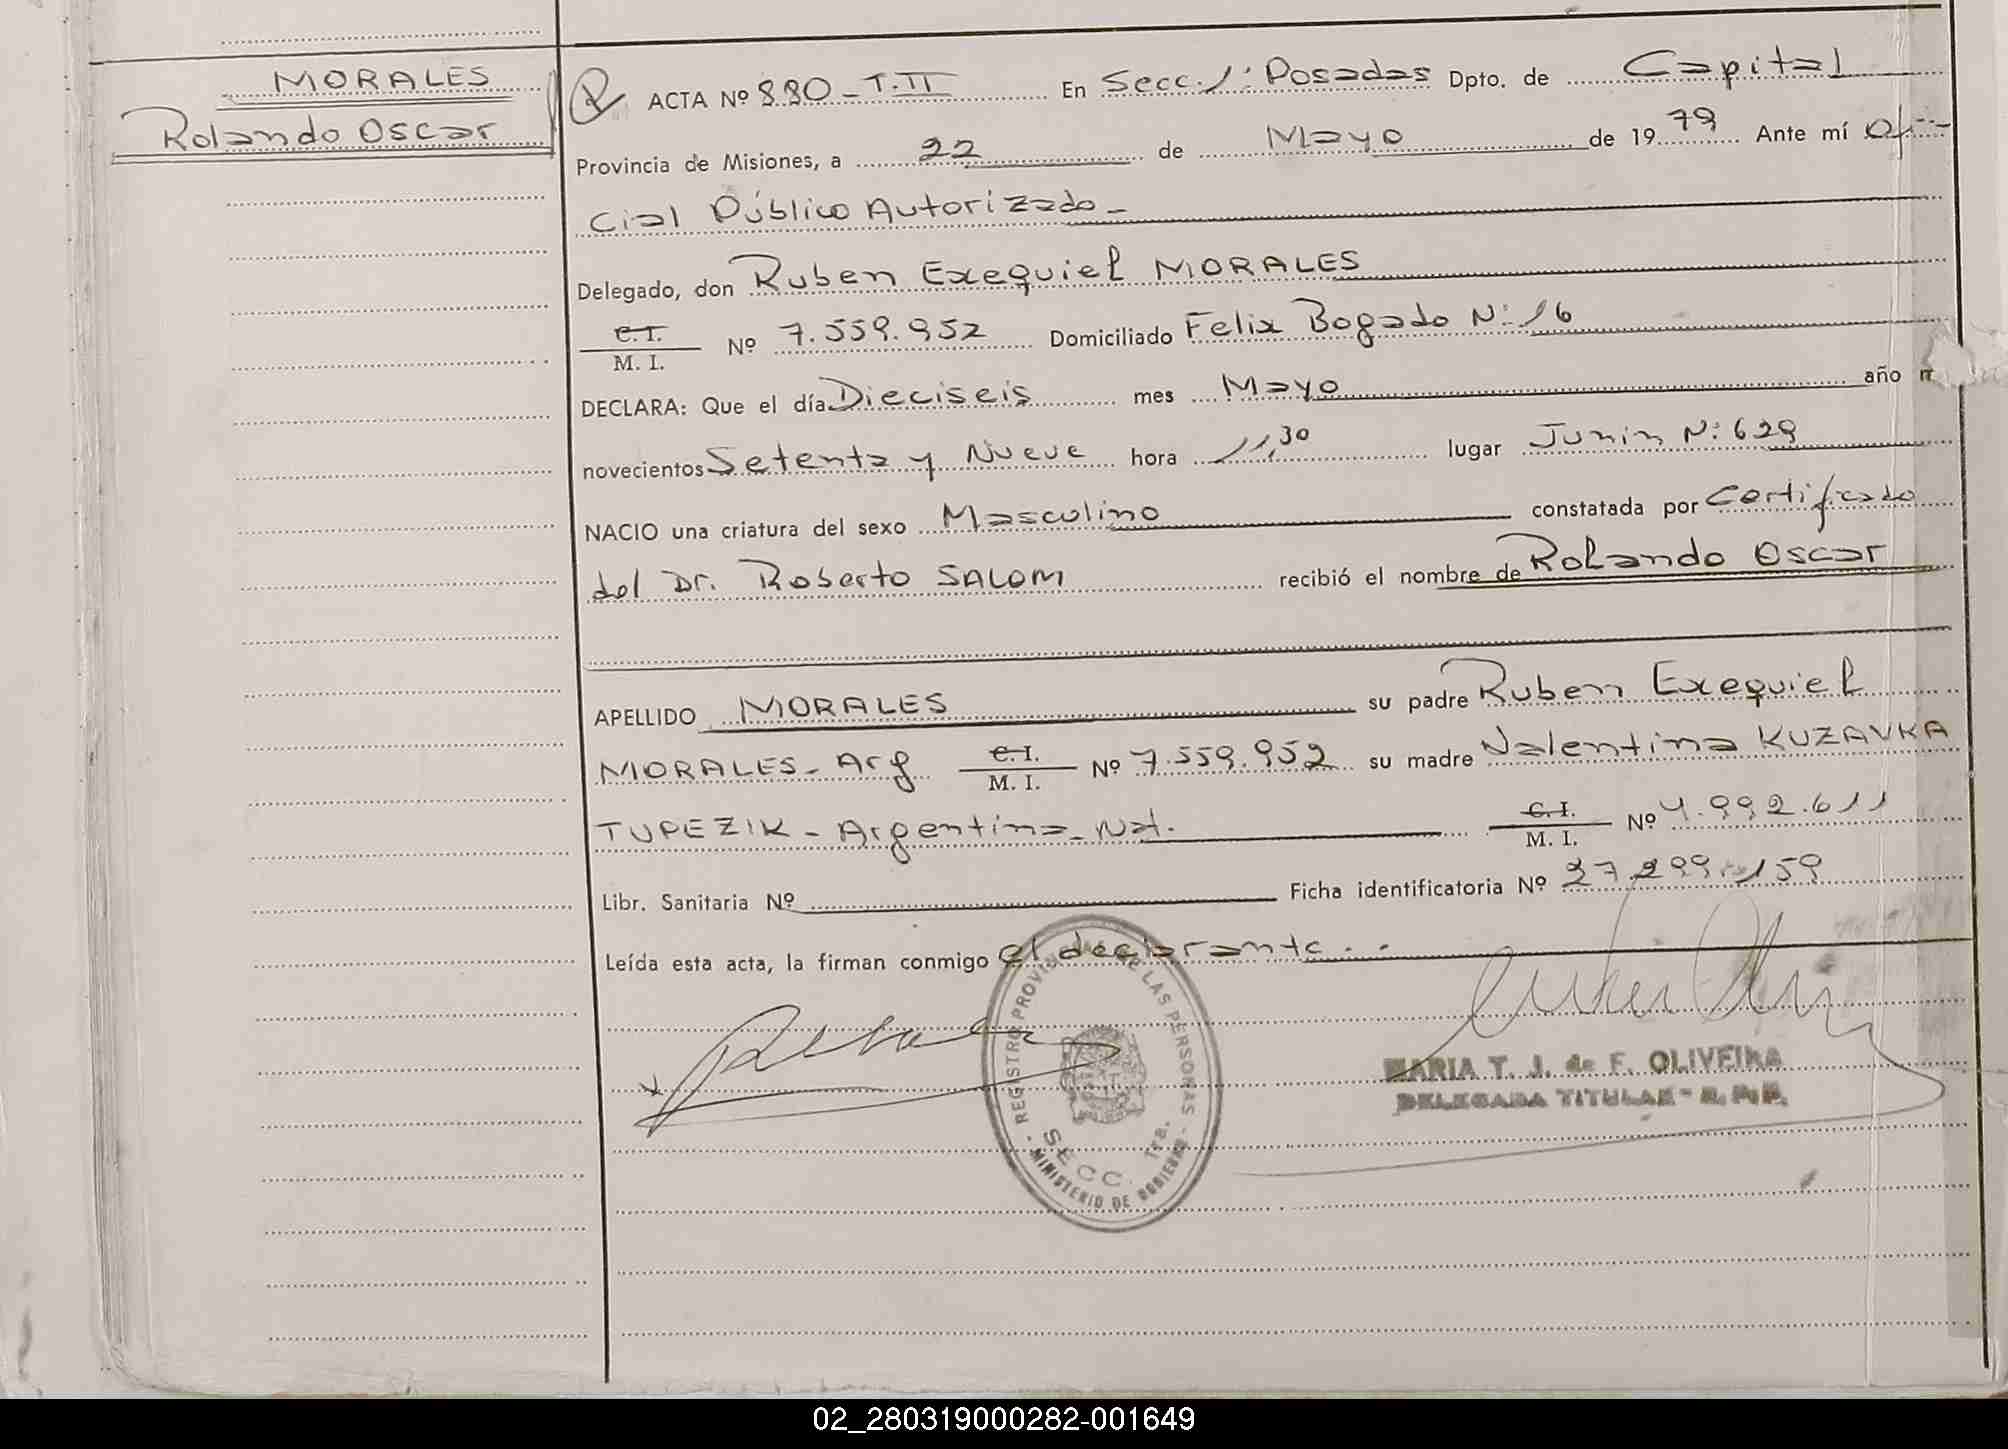 MORALES
Rolando Oscar
ACTA Nº 890 - T. II En Secc. 1ª Posadas Dpto. de Capital
Provincia de Misiones, a 22 de Mayo de 1979 Ante mí Ofi-
cial Público Autorizado -
Delegado, don Ruben Exequiel MORALES
C. I.
M. I. Nº 7.559.952 Domiciliado Felix Bogado Nº 16
DECLARA: Que el día Dieciseis mes Mayo año
novecientos Setenta y Nueve hora 11,30 lugar Junin Nº 629
NACIO una criatura del sexo Masculino constatada por Certificado
del Dr. Roberto SALOM recibió el nombre de Rolando Oscar
APELLIDO MORALES su padre Ruben Exequiel
MORALES - Arg C. I. M. I. Nº 7.559.952 su madre Valentina KUZAVKA
TUPEZIK - Argentina - Nat. C. I. M. I. Nº 4.992.611
Libr. Sanitaria Nº Ficha identificatoria Nº 27.299.159
Leída esta acta, la firman conmigo el declarante
REGISTRO PROVINCIAL DE LAS PERSONAS
SECC. 1ra.
MINISTERIO DE GOBIERNO
MARIA T. J. de F. OLIVEIRA
DELEGADA TITULAR - R. P. P.
02_280319000282-001649